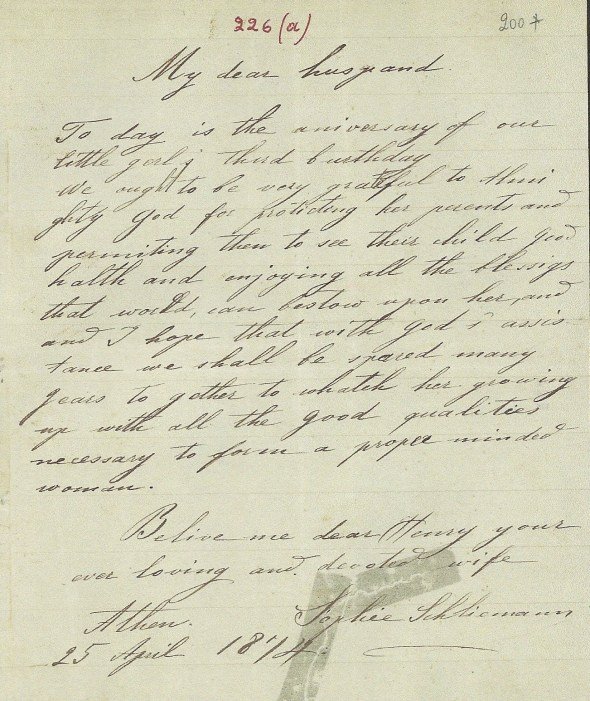 226 (a)
200 7
My dear huspand.
To day is the aniversary of our
little gerl j third burthday
We ought to be very grateful to Almi
ghty God for protiding her perents and
permiting then to see their child good
halth and enjoying all the blessigs
that world, can bestow upon her, and
and I hope that with God s assis
tance we shall be spared many
years to gether to whatch her growing
up with all the good qualities
necessary to form a proper minded
woman.
Belive me dear Henry your
ever loving and devoted wife
Athen. Sophie Schliemann
25 April 1874.